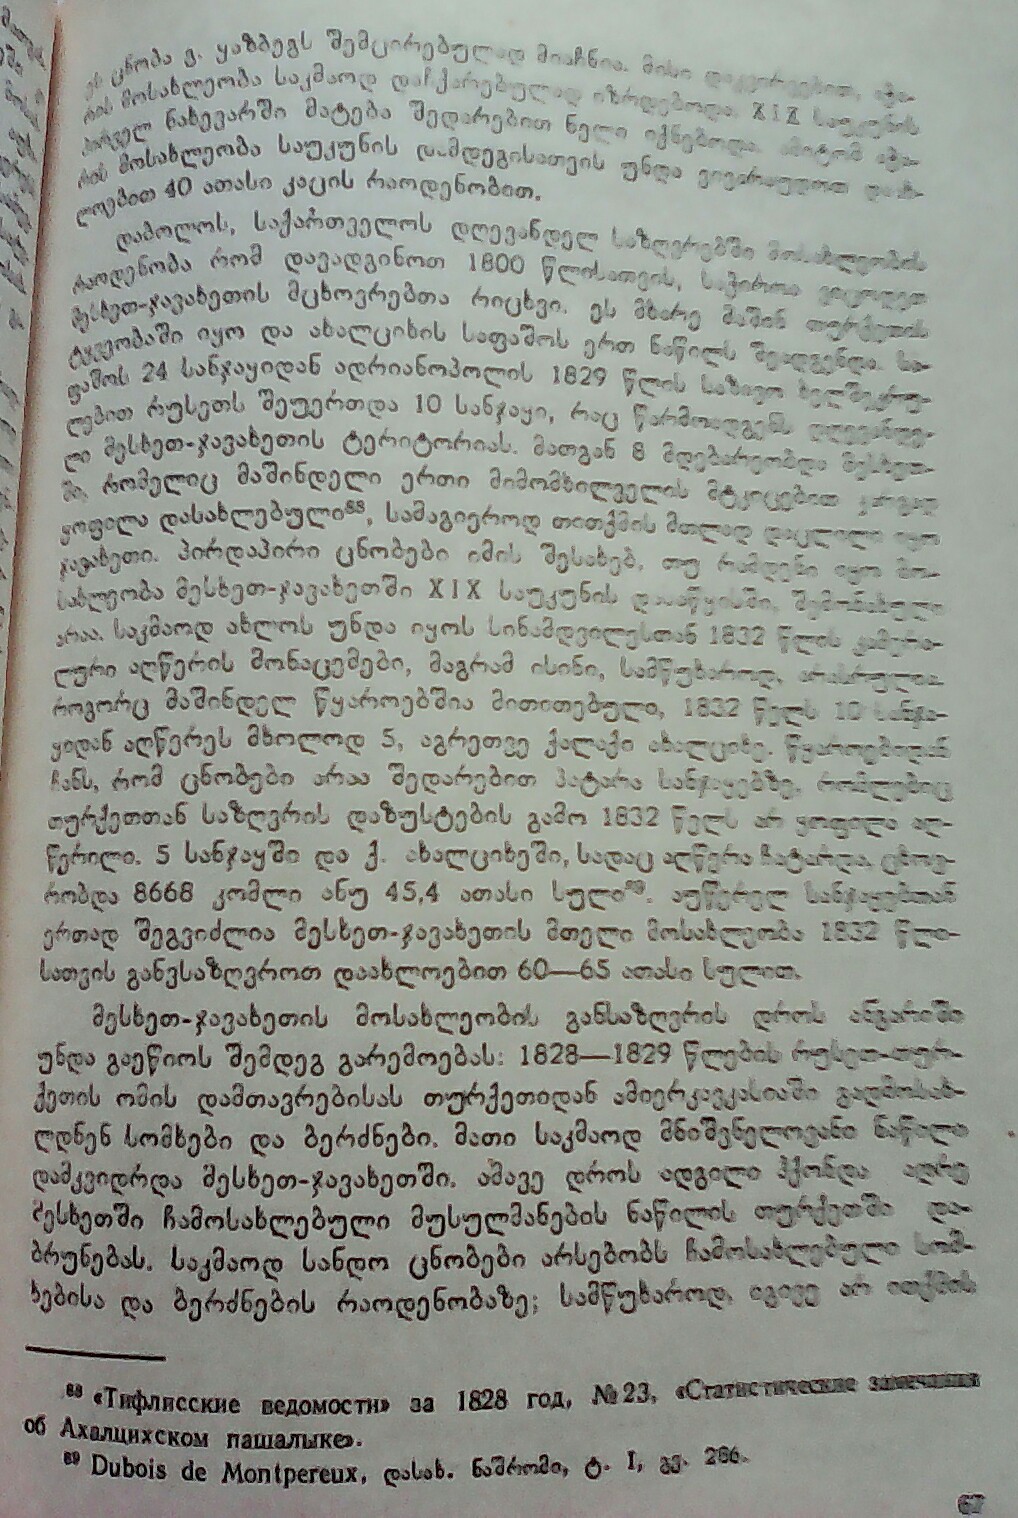 ეს ცნობა გ. ყაზბეგს შემცირებულად მიაჩნია. მისი დაკვირვებით, აჭა-
რის მოსახლეობა საკმაოდ დაჩქარებულად იზრდებოდა. XIX საუკუნის
პირველ ნახევარში მატება შედარებით ნელი იქნებოდა. ამიტომ აჭა-
რის მოსახლეობა საუკუნის დამდეგისათვის უნდა ვივარაუდოთ დაახ-
ლოებით 40 ათასი კაცის რაოდენობით.
დაბოლოს, საქართველოს დღევანდელ საზღვრებში მოსახლეობის
რაოდენობა რომ დავადგინოთ 1800 წლისათვის, საჭიროა ვიცოდეთ
მესხეთ-ჯავახეთის მცხოვრებთა რიცხვი. ეს მხარე მაშინ თურქეთის
ტყვეობაში იყო და ახალციხის საფაშოს ერთ ნაწილს შეადგენდა. სა-
ფაშოს 24 სანჯაყიდან ადრიანოპოლის 1829 წლის საზავო ხელშეკრუ-
ლებით რუსეთს შეუერთდა 10 სანჯაყი, რაც წარმოადგენს დღევანდე-
ლი მესხეთ-ჯავახეთის ტერიტორიას. მათგან 8 მდებარეობდა მესხეთ-
ში, რომელიც მაშინდელი ერთი მიმომხილველის მტკიცებით კარგად
ყოფილა დასახლებული⁸⁸, სამაგიეროდ თითქმის მთლად დაცლილი იყო
ჯავახეთი. პირდაპირი ცნობები იმის შესახებ, თუ რამდენი იყო მო-
სახლეობა მესხეთ-ჯავახეთში XIX საუკუნის დასაწყისში, შემონახული
არაა. საკმაოდ ახლოს უნდა იყოს სინამდვილესთან 1832 წლის კამერა-
ლური აღწერის მონაცემები, მაგრამ ისინი, სამწუხაროდ, არასრულია.
როგორც მაშინდელ წყაროებშია მითითებული, 1832 წელს 10 სანჯა-
ყიდან აღწერეს მხოლოდ 5, აგრეთვე ქალაქი ახალციხე. წყაროებიდან
ჩანს, რომ ცნობები არაა შედარებით პატარა სანჯაყებზე, რომლებიც
თურქეთთან საზღვრის დაზუსტების გამო 1832 წელს არ ყოფილა აღ-
წერილი. 5 სანჯაყში და ქ. ახალციხეში, სადაც აღწერა ჩატარდა, ცხოვ-
რობდა 8668 კომლი ანუ 45,4 ათასი სული⁸⁹. აუწერელ სანჯაყებთან
ერთად შეგვიძლია მესხეთ-ჯავახეთის მთელი მოსახლეობა 1832 წლი-
სათვის განვსაზღვროთ დაახლოებით 60—65 ათასი სულით.
მესხეთ-ჯავახეთის მოსახლეობის განსაზღვრის დროს ანგარიში
უნდა გაეწიოს შემდეგ გარემოებას: 1828—1829 წლების რუსეთ-თურ-
ქეთის ომის დამთავრებისას თურქეთიდან ამიერკავკასიაში გადმოსახ-
ლდნენ სომხები და ბერძნები. მათი საკმაოდ მნიშვნელოვანი ნაწილი
დამკვიდრდა მესხეთ-ჯავახეთში. ამავე დროს ადგილი ჰქონდა ადრე
მესხეთში ჩამოსახლებული მუსულმანების ნაწილის თურქეთში და-
ბრუნებას. საკმაოდ სანდო ცნობები არსებობს ჩამოსახლებული სომ-
ხებისა და ბერძნების რაოდენობაზე; სამწუხაროდ, იგივე არ ითქმის
⁸⁸ «Тифлисские ведомости» за 1828 год, №23, «Статистические замечания
об Ахалцихском пашалыке».
⁸⁹ Dubois de Montpereux, დასახ. ნაშრომი, ტ. I, გვ. 286.
67